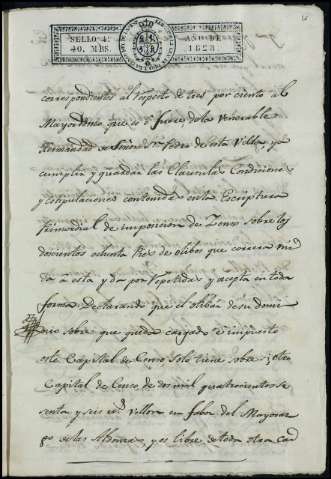 SELLO 4º
40. MRS.
AÑO DE
1828
correspondientes al respecto de tres por ciento al
Mayordomo que es o fuere de la Venerable
Hermandad de Señor Sn. Pedro de esta Villa, y a
cumplir y guardar las Clausulas Condiciones
y estipulaciones contenidas en la Escriptura
Primordial de imposicion de Zenso sobre los
doscientos ochenta pies de olibos que corren
da a esta y da por repetidas y acepta en toda
forma Declarando que el olibar de su domi
nio sobre que queda cargado e impuesto
este Capital de Censo, solo tiene sobre si otro
Capital de Censo de dos mil quatrocientos se
senta y seis rs. Vellon en fabor del Mayoraz
go de las Alonsas, y es libre de toda otra Car